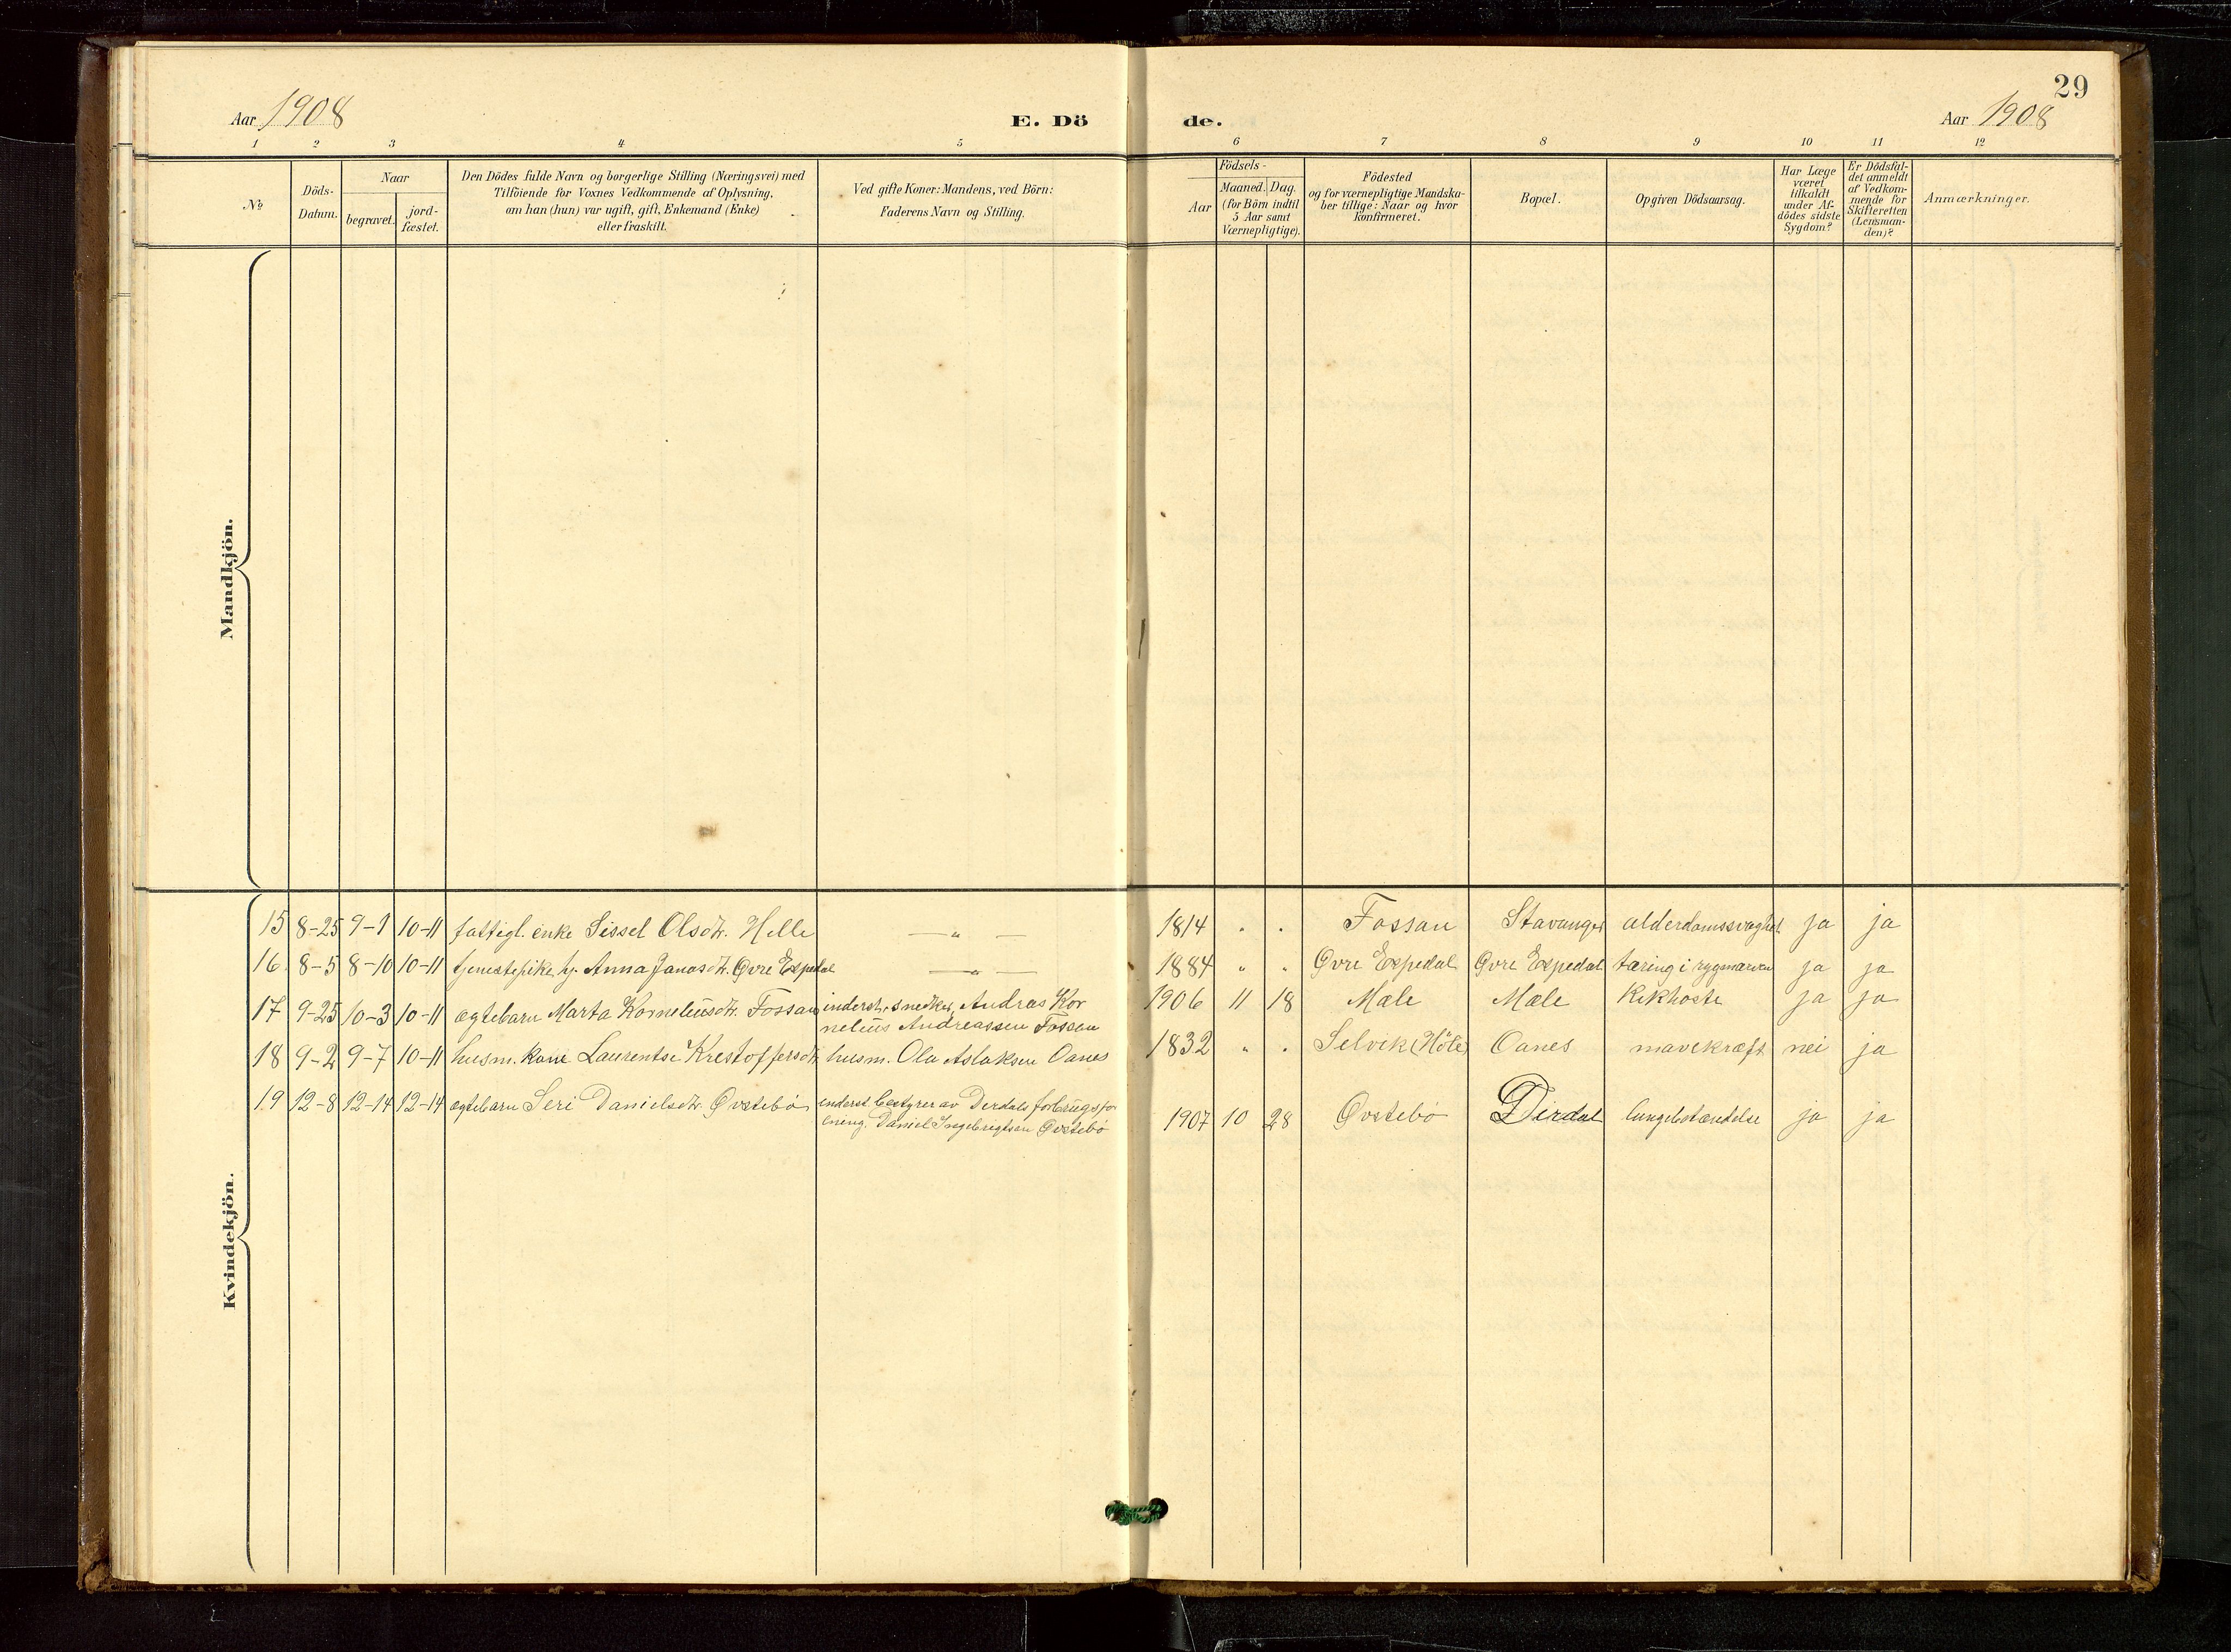 29
Aar 1908
E. Dö
de.
Aar 1908
1 2 3 4 5 6 7 8 9 10 11 12
No
Döds-
Datum.
Naar
begravet.
jord-
fæstet.
Den Dödes fulde Navn og borgerlige Stilling (Næringsvei) med
Tilföiende for Voxnes Vedkommende af Oplysning,
om han (hun) var ugift, gift, Enkemand (Enke)
eller fraskilt.
Ved gifte Koner: Mandens, ved Börn:
Faderens Navn og Stilling.
Födsels-
Aar
Maaned. Dag.
(for Börn indtil
5 Aar samt
Værnepligtige).
Födested
og for værnepligtige Mandska-
ber tillige: Naar og hvor
konfirmeret.
Bopæl.
Opgiven Dödsaarsag.
Har Læge
været
tilkaldt
under Af-
dödes sidste
Sygdom?
Er Dödsfal-
det anmeldt
af Vedkom-
mende for
Skifteretten
(Lensman-
den)?
Anmærkninger.
Mandkjön.
Kvindekjön.
15 8-25 9-1 10-11 fattigl. enke Sissel Olsdt. Helle — " — 1814 " " Fossan Stavanger alderdomssvaghet ja ja
16. 8-5 8-10 10-11 tjenestepike Anna Janasdt. Øvre Espedal — " — 1884 " " Øvre Espedal Øvre Espedal tæring i rygmarven ja ja
17 9-25 10-3 10-11 ægtebarn Marta Korneliusdt. Fossan inderst, snedker, Andreas Kor
nelius Andreassen Fossan 1906 11 18 Mæle Mæle Kikhoste ja ja
18 9-2 9-7 10-11 husm. kone Laurentse Krestoffersdt. husm. Ola Aslaksen Oanes 1832 " " Selvik (Höle) Oanes mavekræft nei ja
19 12-8 12-14 12-14 ægtebarn Seri Danielsdt. Øvstebö inderst bestyrer av Dirdals forbrugsfor
ening. Daniel Ingebrigtsen Øvstebö 1907 10 28 Øvstebö Dirdal lungebetændelse ja ja